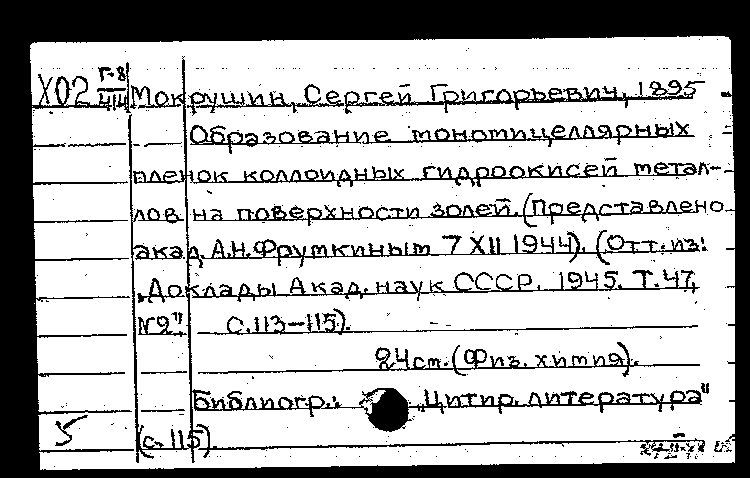 Х02 Г-8/44 Мокрушин, Сергей Григорьевич, 1895
Образование мономицеллярных
пленок коллоидных гидроокисей метал-
лов на поверхности золей. (Представлено
акад. А.Н. Фрумкиным 7 XII 1944). (Отт. из:
„Доклады Акад. наук СССР. 1945. Т. 47,
№2" С. 113-115).
24 см. (Физ. химия).
Библиогр.: „Цитир. литература"
5 (с. 115).